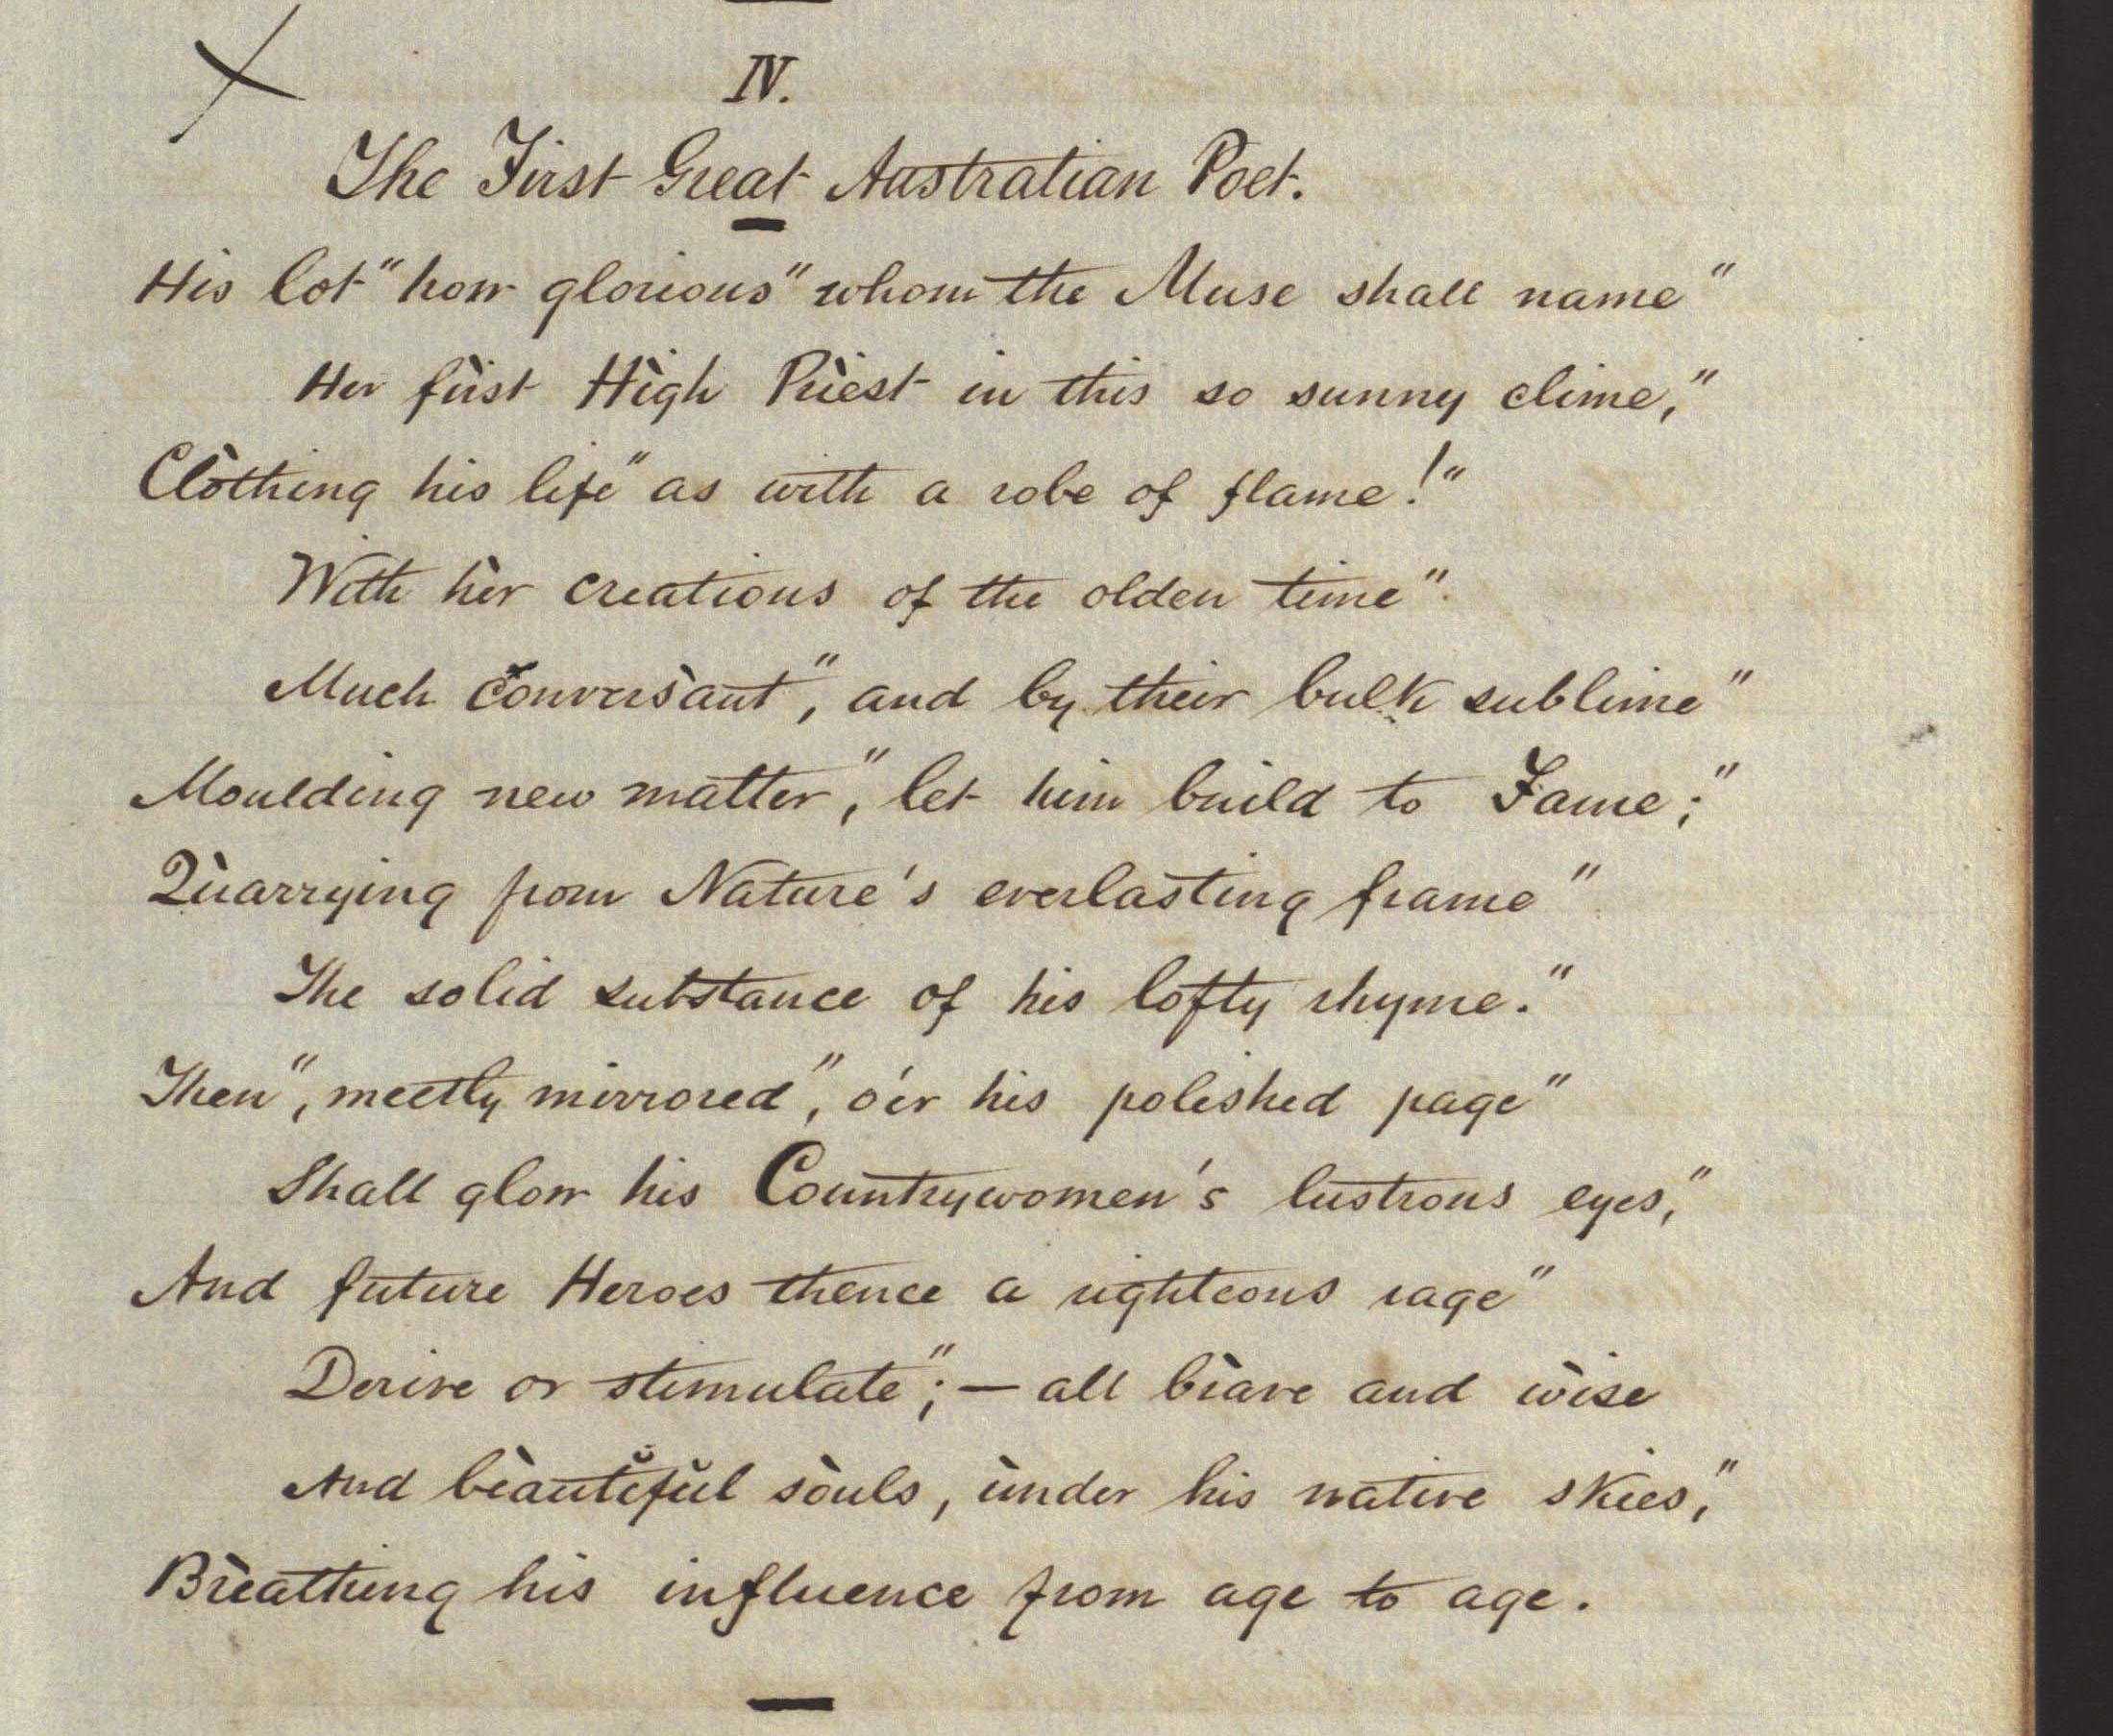 IV.
The First Great Australian Poet.
His lot" how glorious" whom the Muse shall name"
Her first High Priest in this so sunny clime,"
Clothing his life" as with a robe of flame!"
With her creations of the olden time"
Much conversant", and by their bulk sublime"
Moulding new matter", let him build to Fame;"
Quarrying from Nature's everlasting frame"
The solid substance of his lofty rhyme."
Then", meetly mirrored", o'er his polished page"
Shall glow his Countrywomen's lustrous eyes,"
And future Heroes thence a righteous rage"
Derive or stimulate";— all brave and wise
And beautiful souls, under his native skies,"
Breathing his influence from age to age.